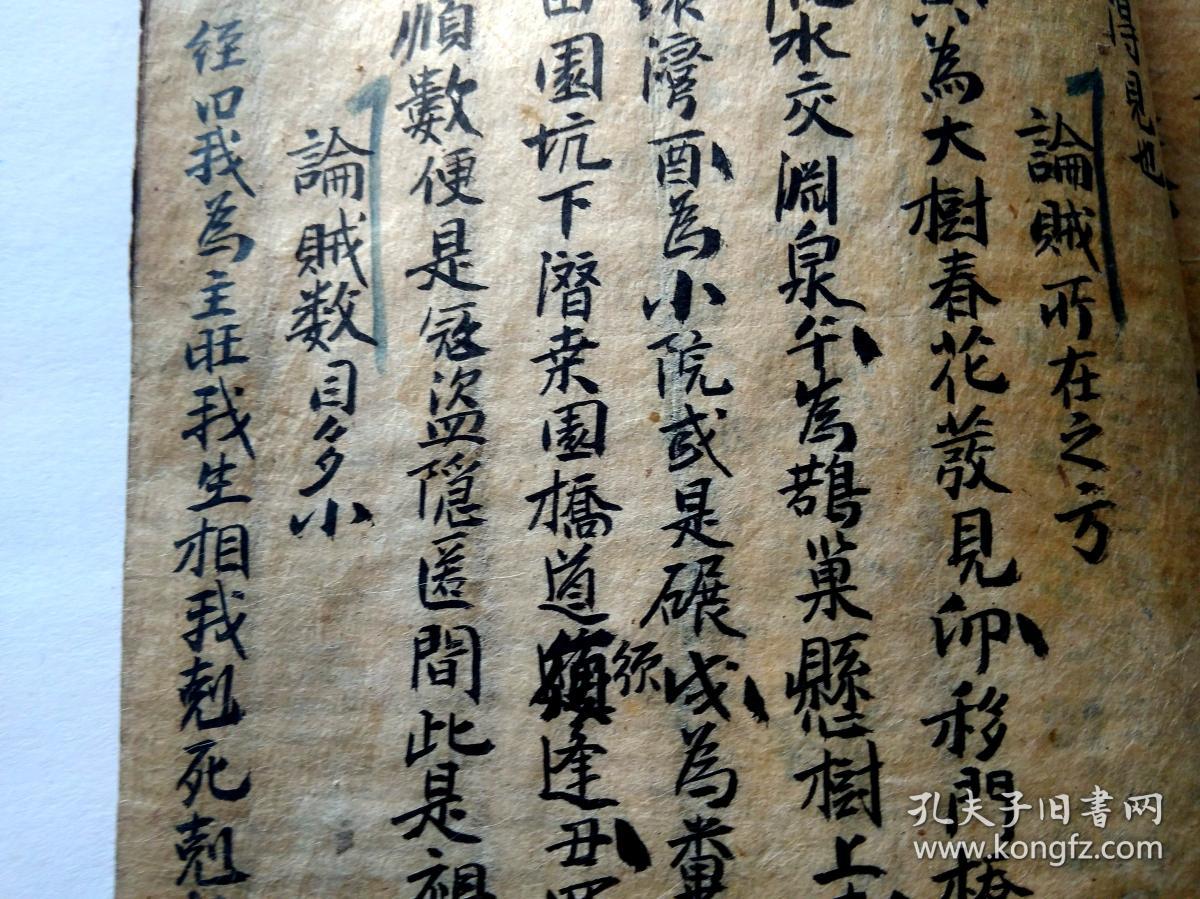 得見也
論賊所在之方
為大樹春花發見卯移門
水交淵泉午為鵲巢懸樹上
灣酉為小院或是碾戌為糞
園坑下潛桑園橋道須逢丑
順數便是寇盜隱匿間此是
論賊数目多小
経曰我為主旺我生相我剋死剋
孔夫子旧书网
www.kongfz.com